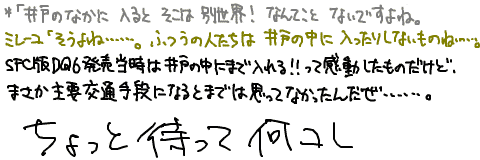 *「井戸のなかに 入ると そこは 別世界! なんてこと ないですよね。
ミレーユ「そうよね……。ふつうの人たちは 井戸の中に 入ったりしないものね…。
SFC版DQ6発売当時は井戸の中にまで入れる!!って感動したものだけど、
まさか主要交通手段になるとまでは思ってなかったんだぜ……。
ちょっと待って何コレ